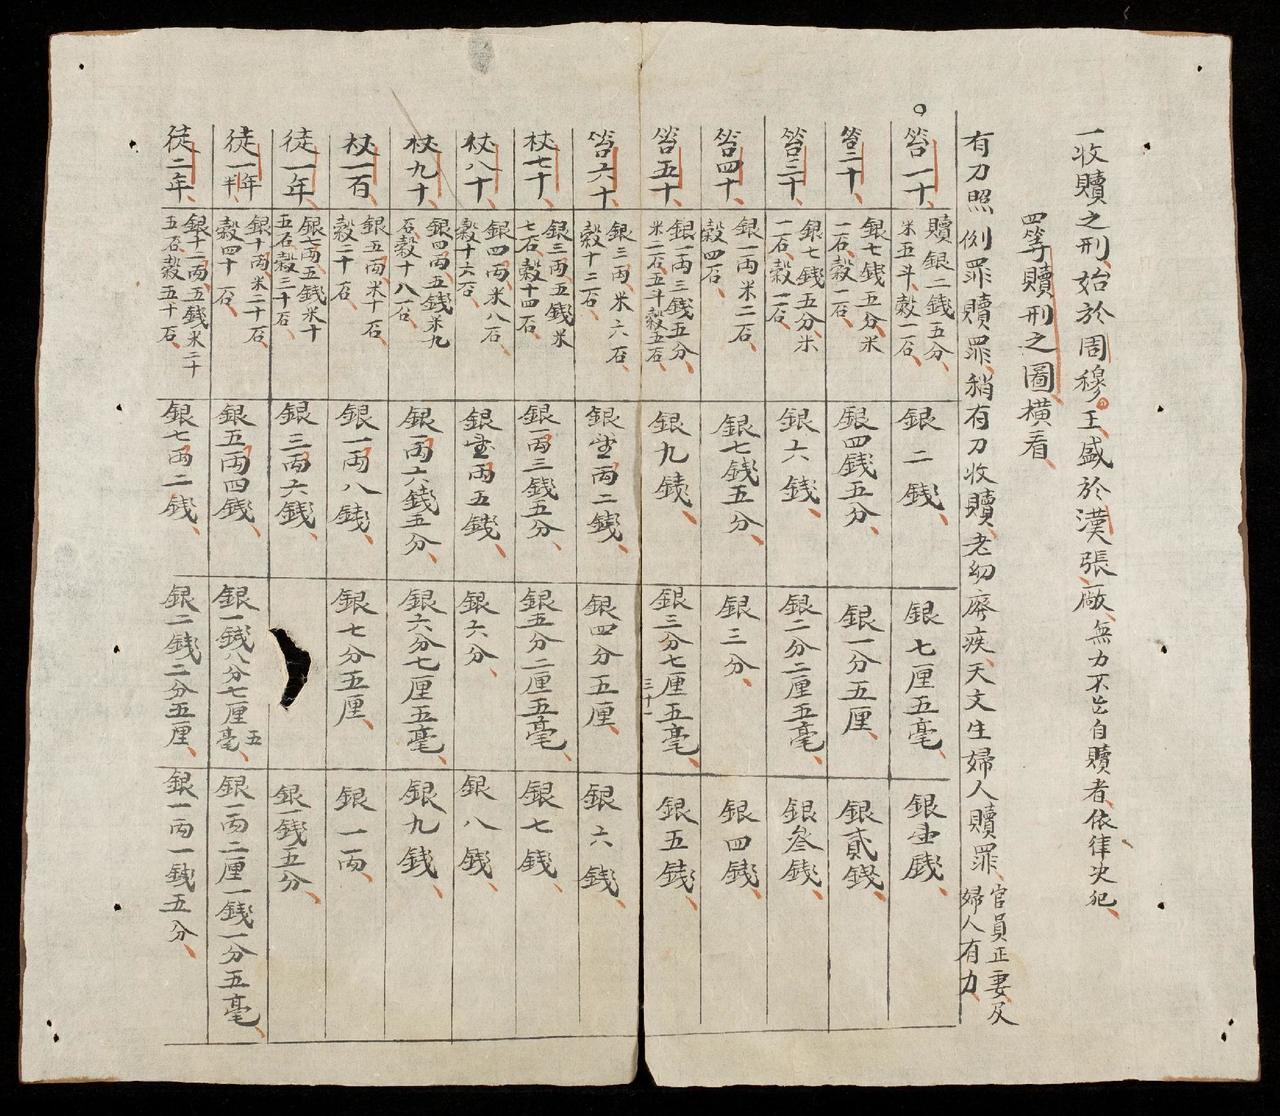 一收贖之刑始於周穆王盛於漢張敞無力不能自贖者依律決犯
四等贖刑之圖橫看
有力照例罪贖罪稍有力收贖老幼廢疾天文生婦人贖罪官員正妻及
婦人有力
笞一十
贖銀二錢五分
米五斗穀一石
銀二錢
銀七厘五毫
銀壹錢
笞二十
銀七錢五分米
一石穀一石
銀四錢五分
銀一分五厘
銀貳錢
笞三十
銀七錢五分米
一石穀二石
銀六錢
銀二分二厘五毫
銀叄錢
笞四十
銀一兩米二石
穀四石
銀七錢五分
銀三分
銀四錢
笞五十
銀一兩三錢五分
米二石五斗穀五石
銀九錢
銀三分七厘五毫
銀五錢
三十一
笞六十
銀三兩米六石
穀十二石
銀壹兩二錢
銀四分五厘
銀六錢
杖七十
銀三兩五錢米
七石穀十四石
銀一兩三錢五分
銀五分二厘五毫
銀七錢
杖八十
銀四兩米八石
穀十六石
銀壹兩五錢
銀六分
銀八錢
杖九十
銀四兩五錢米九
石穀十八石
銀一兩六錢五分
銀六分七厘五毫
銀九錢
杖一百
銀五兩米十石
穀二十石
銀一兩八錢
銀七分五厘
銀一兩
徒一年
銀七兩五錢米十
五石穀三十石
銀三兩六錢
銀一錢五分
徒一年半
銀十兩米二十石
穀四十石
銀五兩四錢
銀一錢八分七厘五毫
銀一兩二厘一錢一分五毫
徒二年
銀十二兩五錢米二十
五石穀五十石
銀七兩二錢
銀二錢二分五厘
銀一兩一錢五分